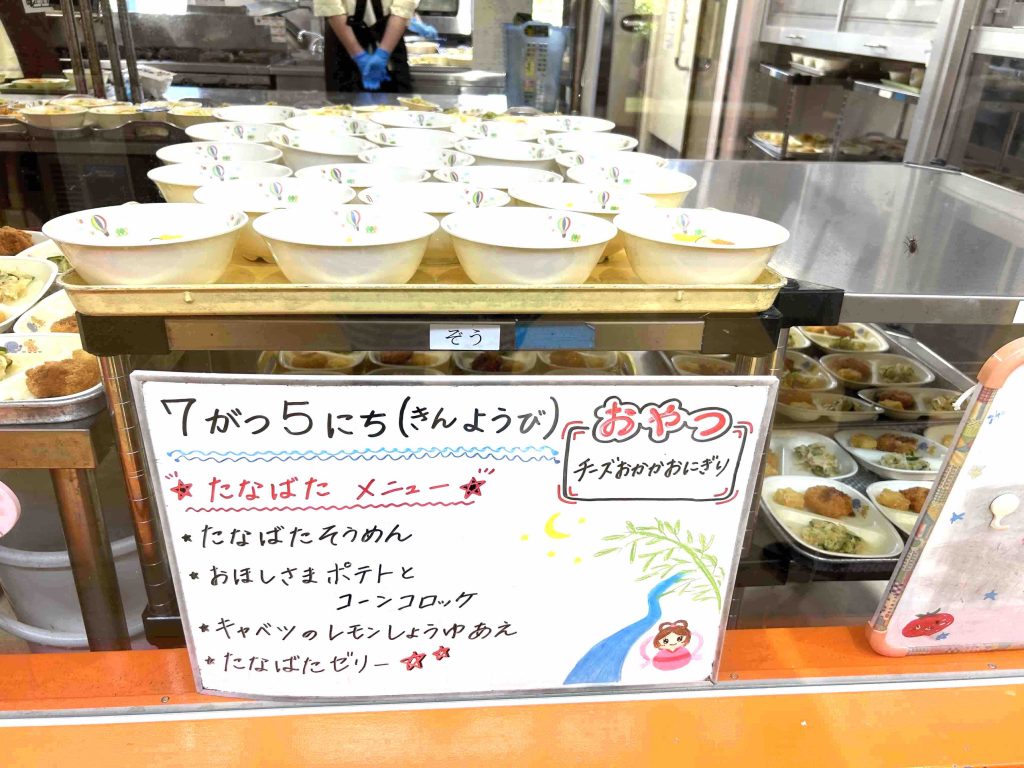 ぞう
7がつ5にち(きんようび)
おやつ
チーズおかかおにぎり
たなばた メニュー
たなばたそうめん
おほしさまポテトと
コーンコロッケ
キャベツのレモンしょうゆあえ
たなばたゼリー